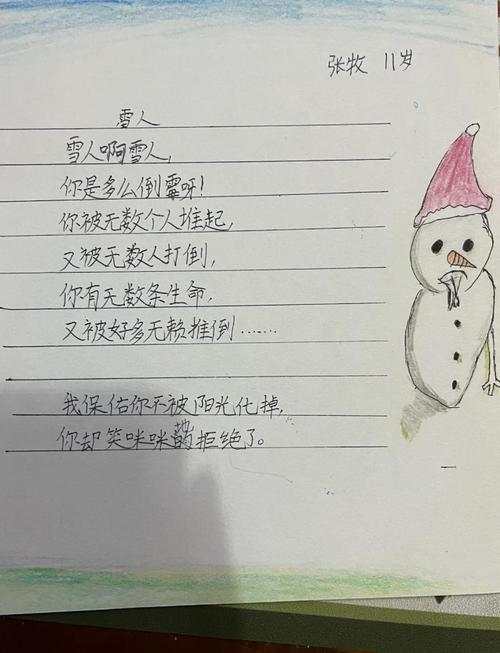 张牧 11岁
雪人
雪人啊雪人,
你是多么倒霉呀!
你被无数个人堆起,
又被无数人打倒,
你有无数条生命,
又被好多无赖推倒……
我保佑你不被阳光化掉,
你却笑咪咪的拒绝了。